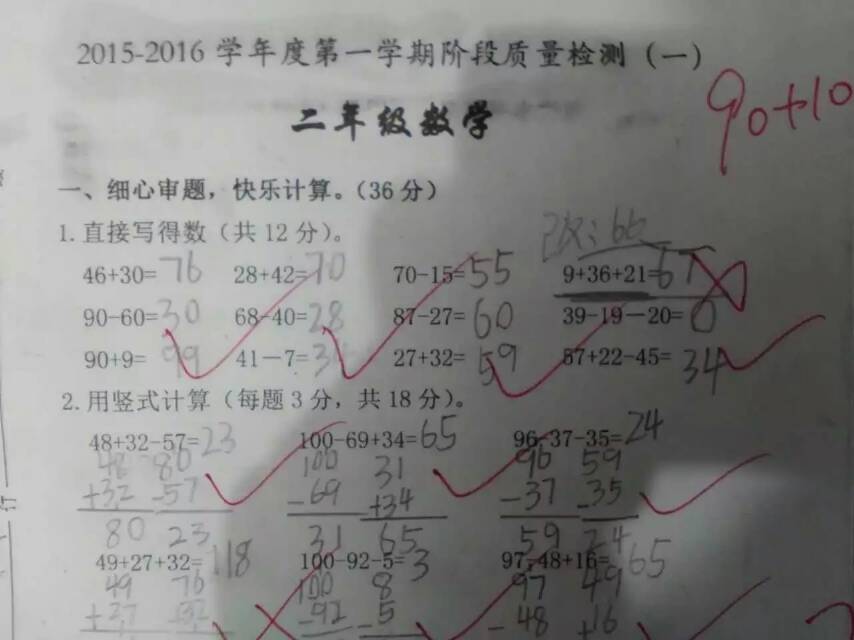 2015-2016 学年度第一学期阶段质量检测（一）
90+10
二年级数学
一、细心审题，快乐计算。（36 分）
1. 直接写得数（共 12 分）。
改：66
46+30=76 28+42=70 70-15=55 9+36+21=67
90-60=30 68-40=28 87-27=60 39-19-20=0
90+9=99 41-7=34 27+32=59 57+22-45=34
2. 用竖式计算（每题 3 分，共 18 分）。
48+32-57=23 100-69+34=65 96-37-35=24
48 80 100 31 96 59
+32 -57 -69 +34 -37 -35
80 23 31 65 59 24
49+27+32=118 100-92-5=3 97-48+16=65
49 76 100 8 97 49
-92 -5 -48 +16